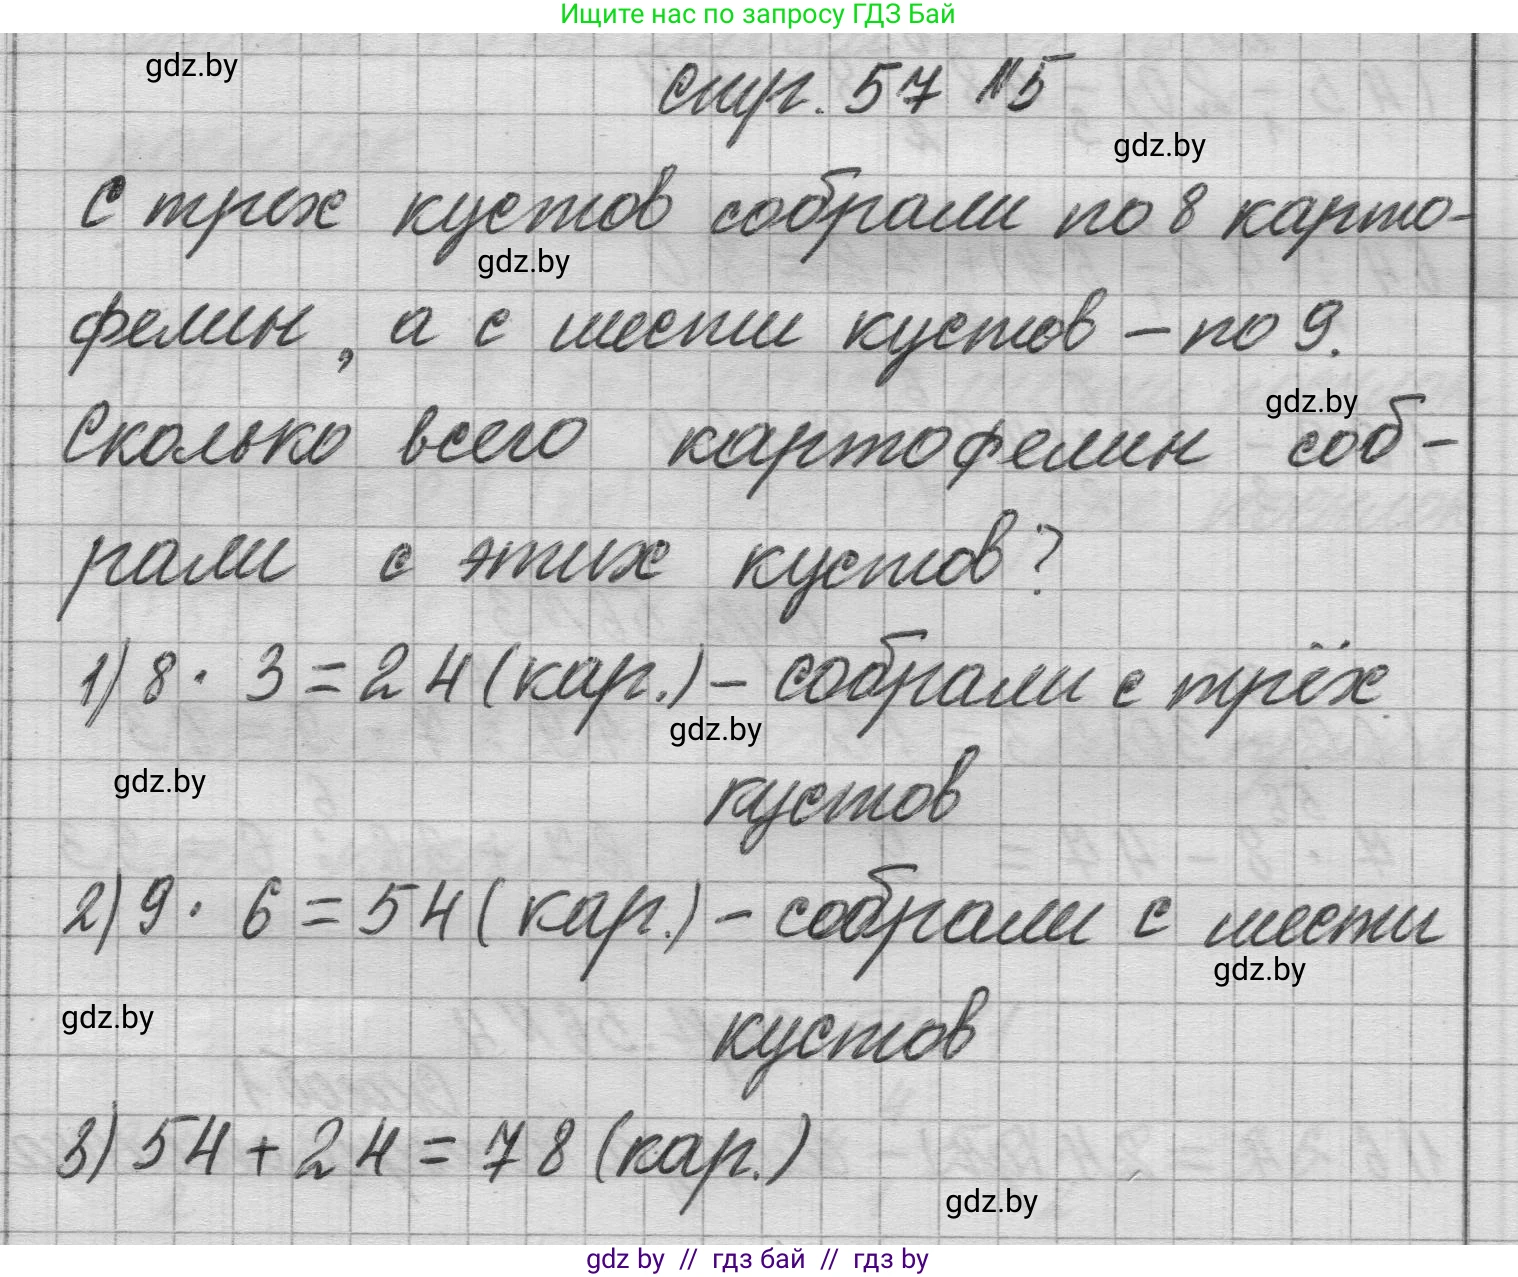 Ищите нас по запросу ГДЗ Бай
gdz.by
стр. 57 №5
gdz.by
С трех кустов собрали по 8 карто-
gdz.by
фелин, а с шести кустов – по 9.
gdz.by
Сколько всего картофелин соб-
рали с этих кустов?
1) 8 · 3 = 24 (кар.) – собрали с трёх
gdz.by
gdz.by
кустов
2) 9 · 6 = 54 (кар.) – собрали с шести
gdz.by
gdz.by
кустов
3) 54 + 24 = 78 (кар.)
gdz.by
gdz by // гдз бай // гдз by